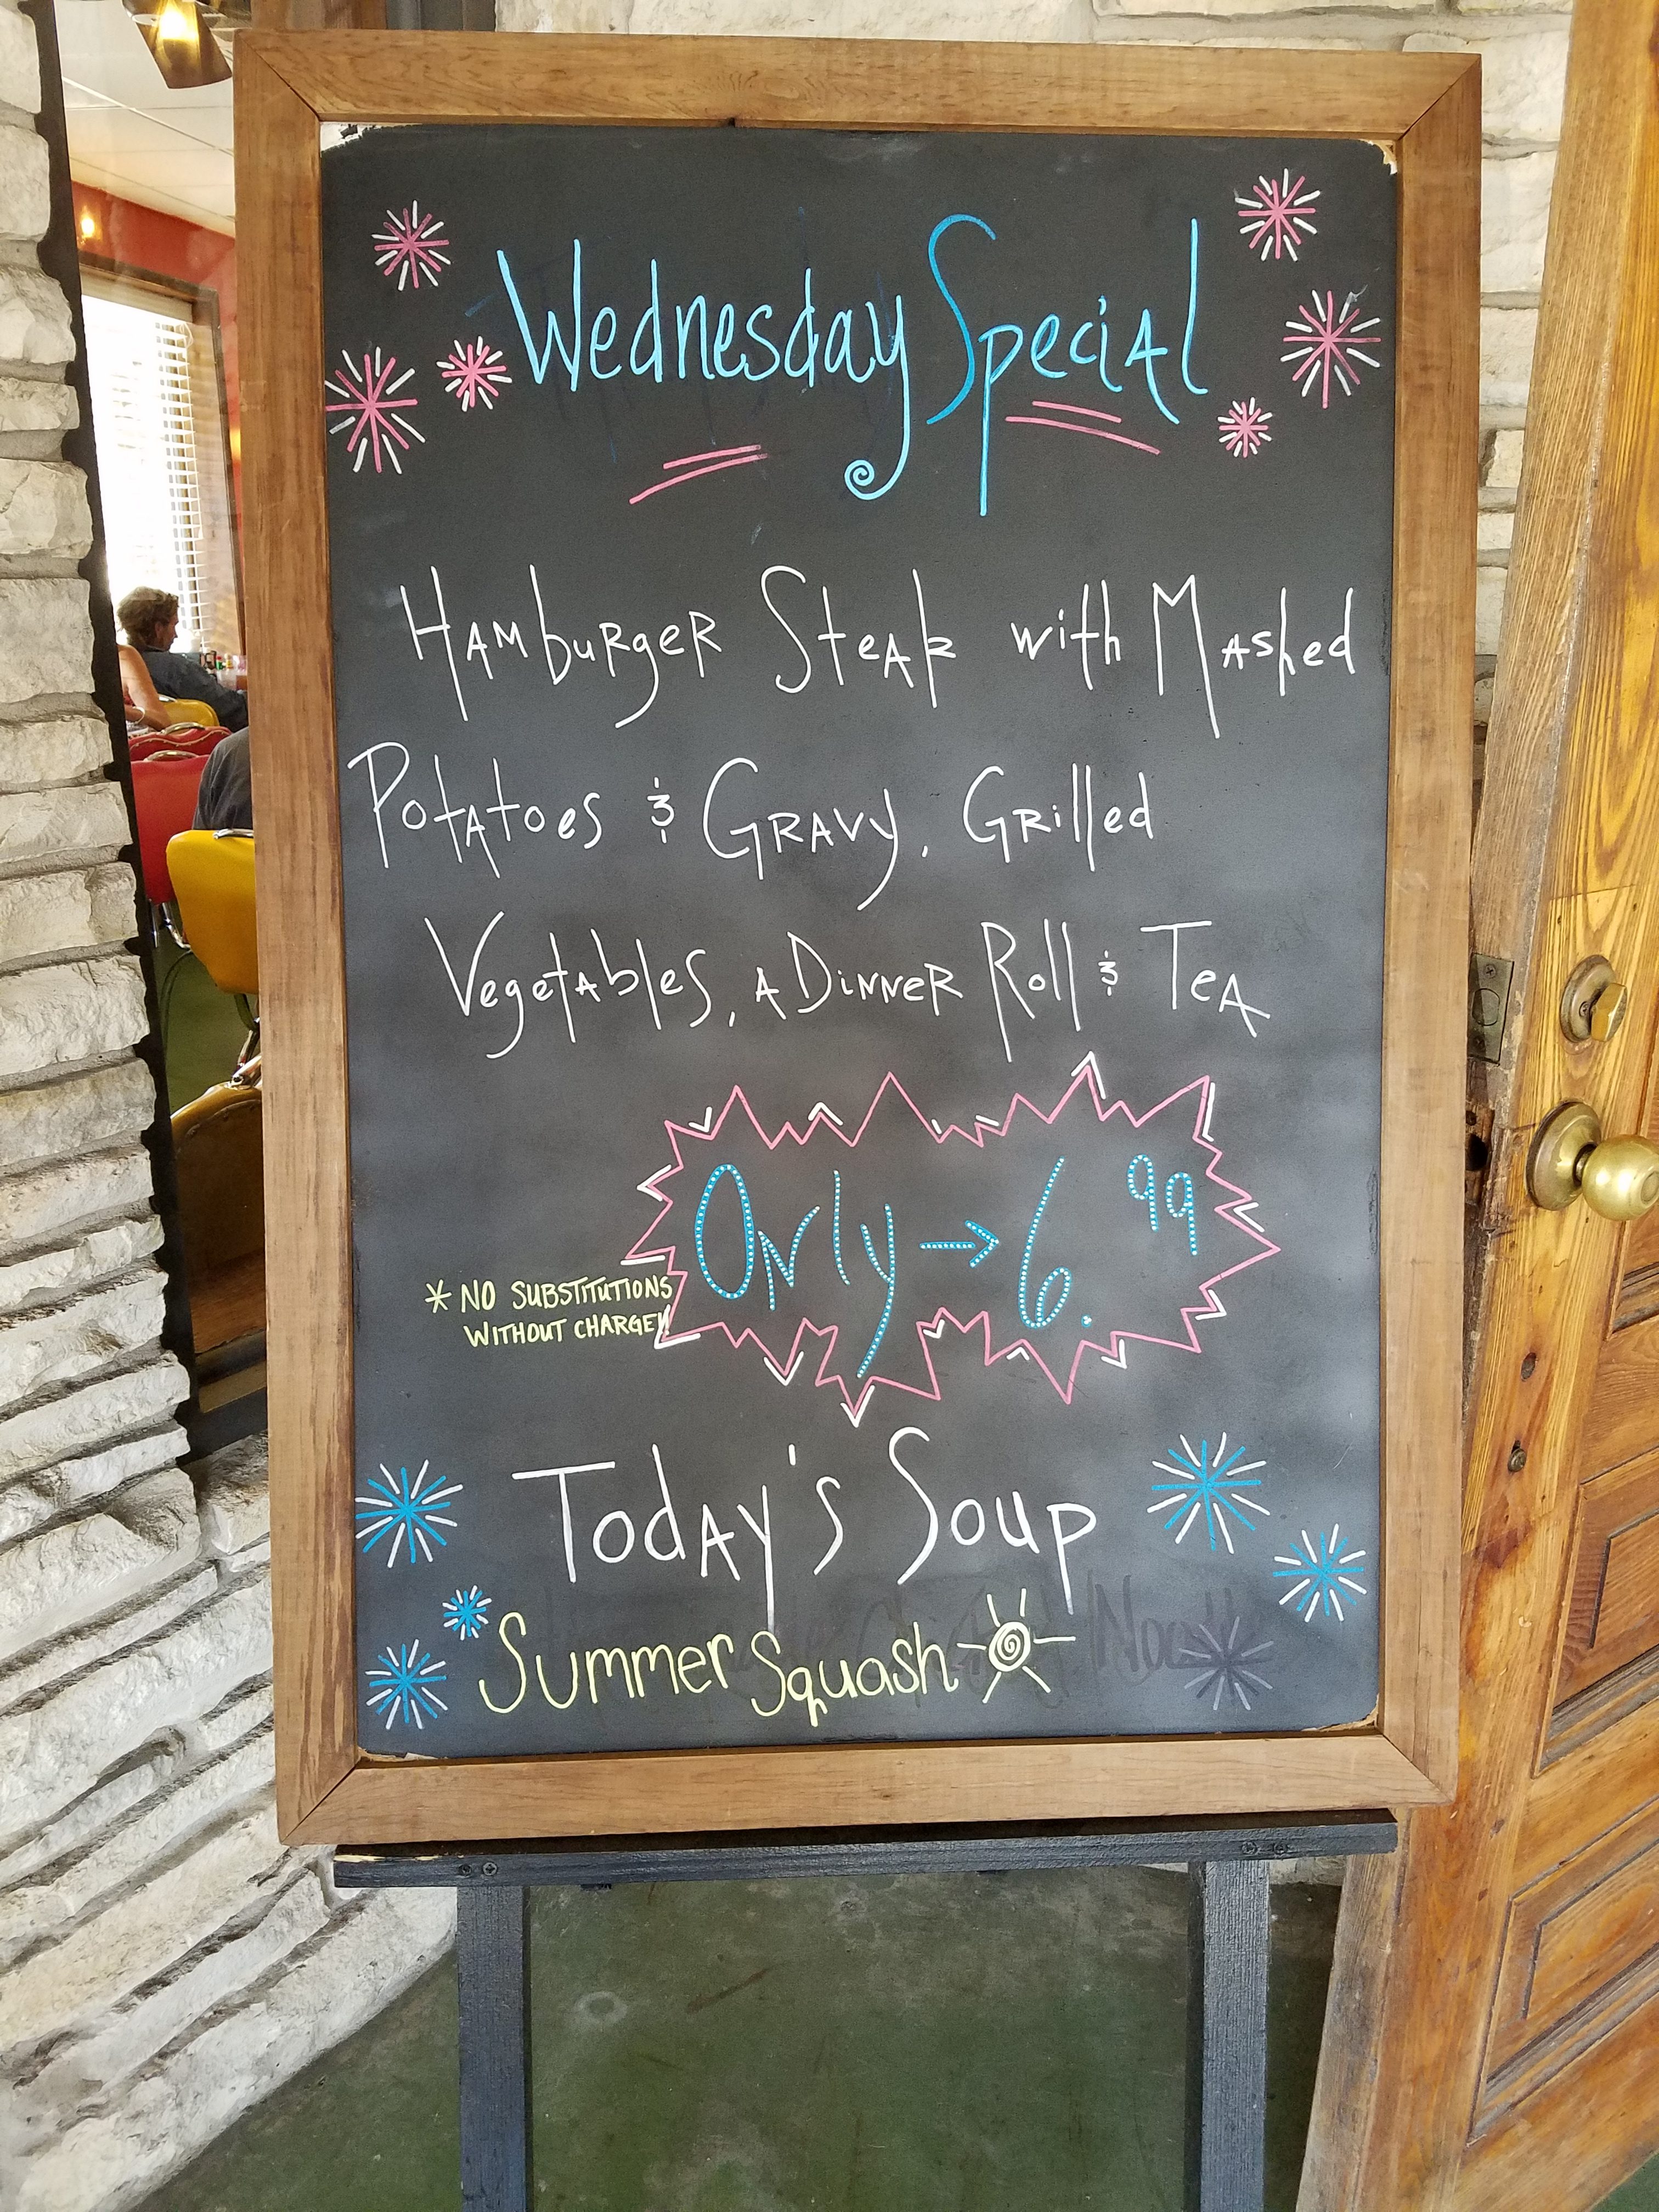 Wednesday Special
Hamburger Steak with Mashed
Potatoes & Gravy, Grilled
Vegetables, a Dinner Roll & Tea
Only → 6.99
* NO SUBSTITUTIONS
WITHOUT CHARGE!!
Today's Soup
Summer Squash